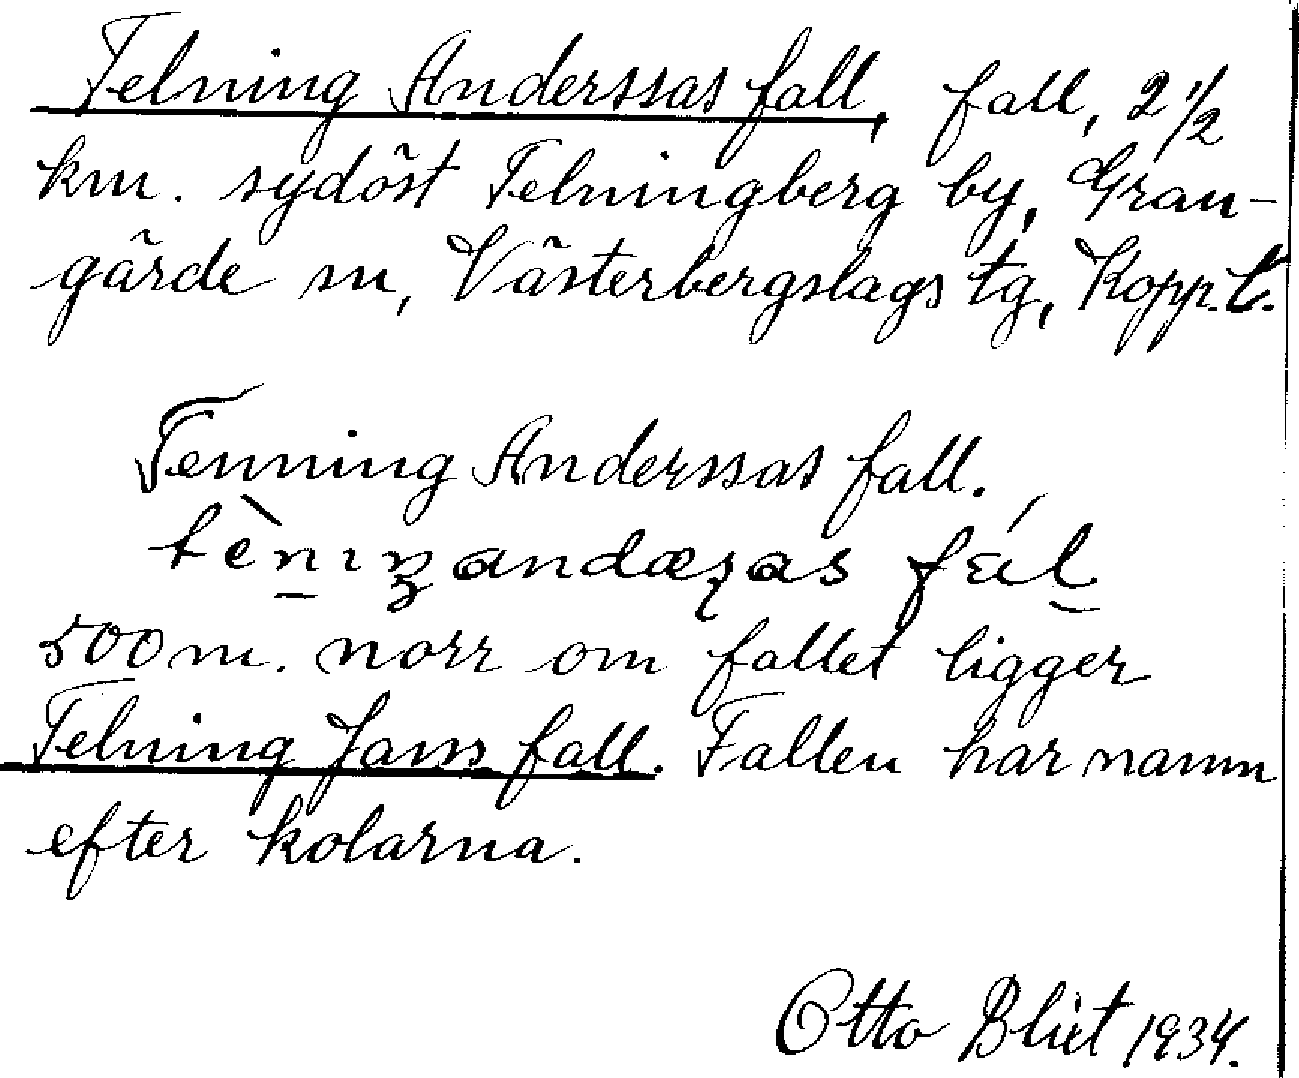 Telning Anderssas fall, fall, 2 1/2
km. sydöst Telningberg by, Gran-
gärde sn, Västerbergslags tg, Kopp. l.
Tenning Anderssas fall.
500 m. norr om fallet ligger
Telning Jans fall. Fallen har namn
efter kolarna.
Otto Blixt 1934.